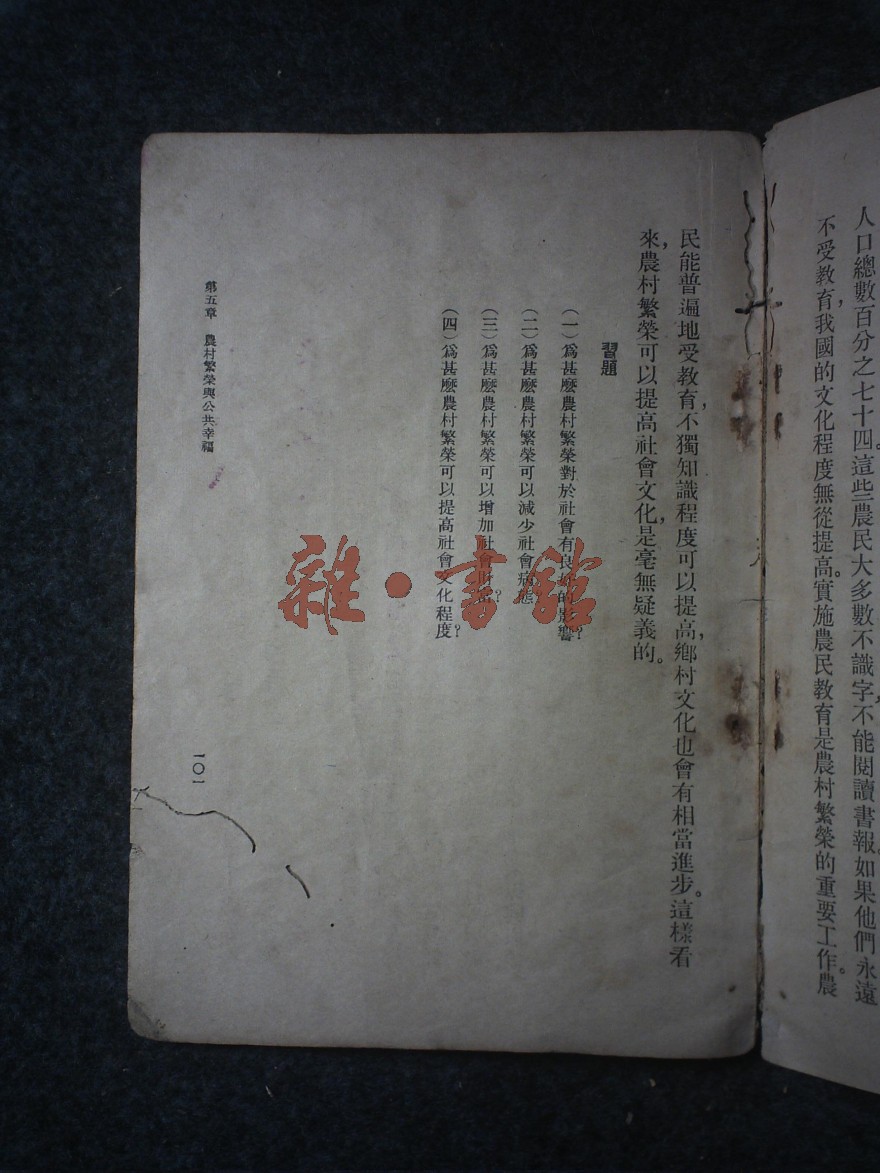 人口總數百分之七十四。這些農民大多數不識字，不能閱讀書報。如果他們永遠
不受教育，我國的文化程度無從提高。實施農民教育是農村繁榮的重要工作。農
民能普遍地受教育，不獨知識程度可以提高，鄉村文化也會有相當進步。這樣看
來，農村繁榮可以提高社會文化，是毫無疑義的。
習題
（一）爲甚麼農村繁榮對於社會有良好的影響？
（二）爲甚麼農村繁榮可以減少社會病態？
（三）爲甚麼農村繁榮可以增加社會財富？
（四）爲甚麼農村繁榮可以提高社會文化程度？
第五章 農村繁榮與公共幸福
一〇一
雜·書館